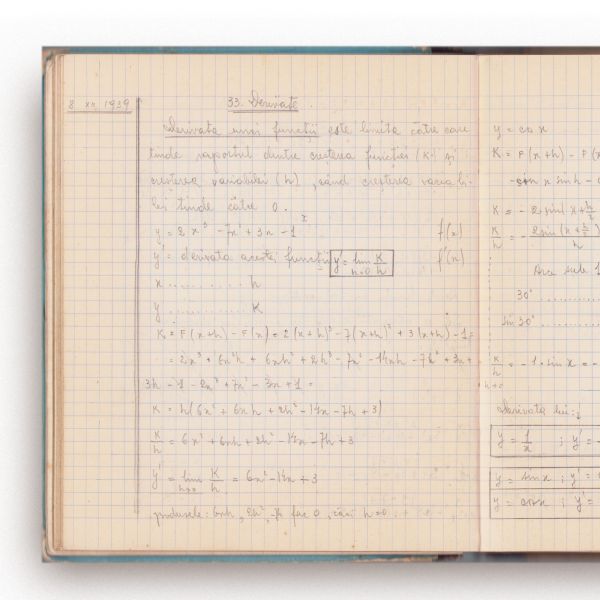 8 XII 1939
33. Derivate.
Derivata unei funcții este limita către care
tinde raportul dintre creșterea funcției (K) și
creșterea variabilei (h), când creșterea variabi-
lei tinde către 0.
y = 2x³ - 7x² + 3x - 1 f(x)
y' = derivata acestei funcții y' = lim K/h h=0 f'(x)
x .......... h
y .......... K
K = F(x+h) - F(x) = 2(x+h)³ - 7(x+h)² + 3(x+h) - 1 =
= 2x³ + 6x²h + 6xh² + 2h³ - 7x² - 14xh - 7h² + 3x +
3h - 1 - 2x³ + 7x² - 3x + 1 =
K = h(6x² + 6xh + 2h² - 14x - 7h + 3)
K/h = 6x² + 6xh + 2h² - 14x - 7h + 3
y' = lim K/h = 6x² - 14x + 3
h=0
produsele: 6xh, 2h², -7h fac 0, căci h=0
y = cos x
K = F(x+h) - F(x
x sin h - c
K = - 2 sin(x+h/2
K/h = - 2 sin(x+h/2 h
Arc sute 1
30° ..........
sin 30° ..........
K/h = - 1 · sin x = -
h=0
Derivata lui:
y = 1/x ; y' = -
y = sin x ; y' =
y = cos x ; y' =